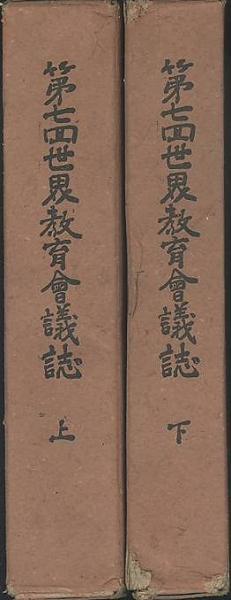 第七回世界教育會議誌
上
第七回世界教育會議誌
下